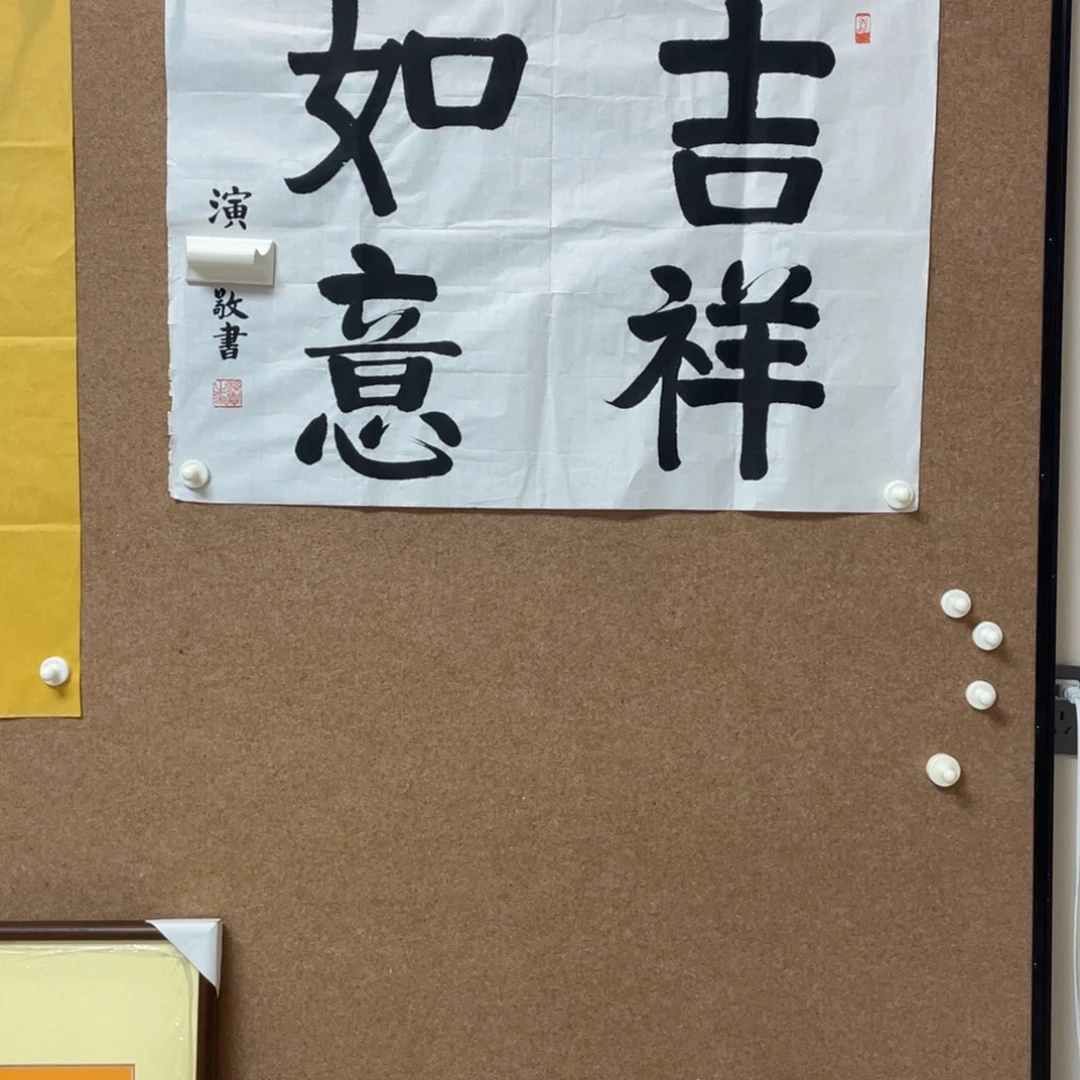 吉祥
如意
演
敬書